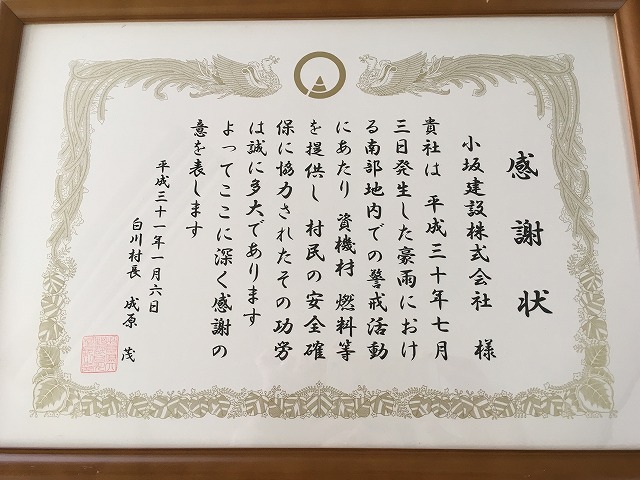 感謝状
小坂建設株式会社 様
貴社は 平成三十年七月
三日発生した豪雨におけ
る南部地内での警戒活動
にあたり 資機材 燃料等
を提供し 村民の安全確
保に協力されたその功労
は誠に多大であります
よってここに深く感謝の
意を表します
平成三十一年一月六日
白川村長 成原 茂